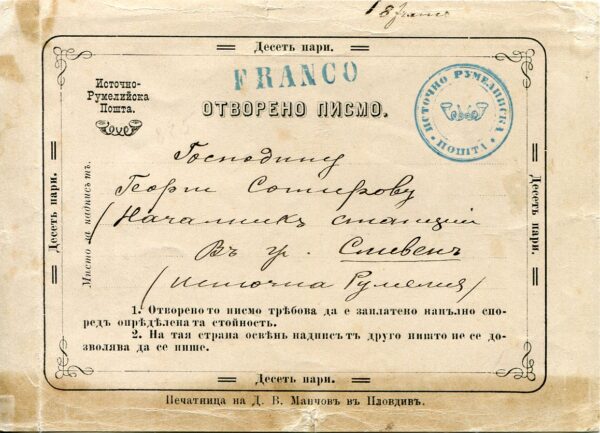 Десеть пари.
FRANCO
Источно-
Румелийска
Поща.
ИСТОЧНО РУМЕЛИЙСКА
ПОЩА
ОТВОРЕНО ПИСМО.
Десеть пари.
Мѣсто за надписътъ.
Десеть пари.
Господину
Георги Сотирову
(Началникъ станции
Въ гр. Сливенъ
(Источна Румелия)
1. Отворено то писмо трѣбова да е заплатено напълно спо-
редъ опрѣдѣлена та стойность.
2. На тая страна освѣнь надписътъ друго ништо не се до-
зволява да се пише.
Десеть пари.
Печатница на Д. В. Манчовъ въ Пловдивъ.